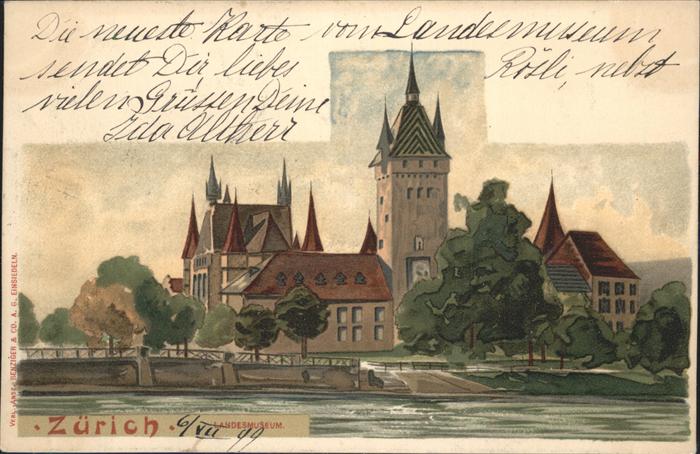 Die neueste Karte vom Landesmuseum
sendet Dir liebes Rösli, nebst
vielen Grüssen Deine
Ida Altherr
VERL. ANST. BENZIGER & CO. A. G. EINSIEDELN.
· Zürich · 6/VII 99
LANDESMUSEUM.